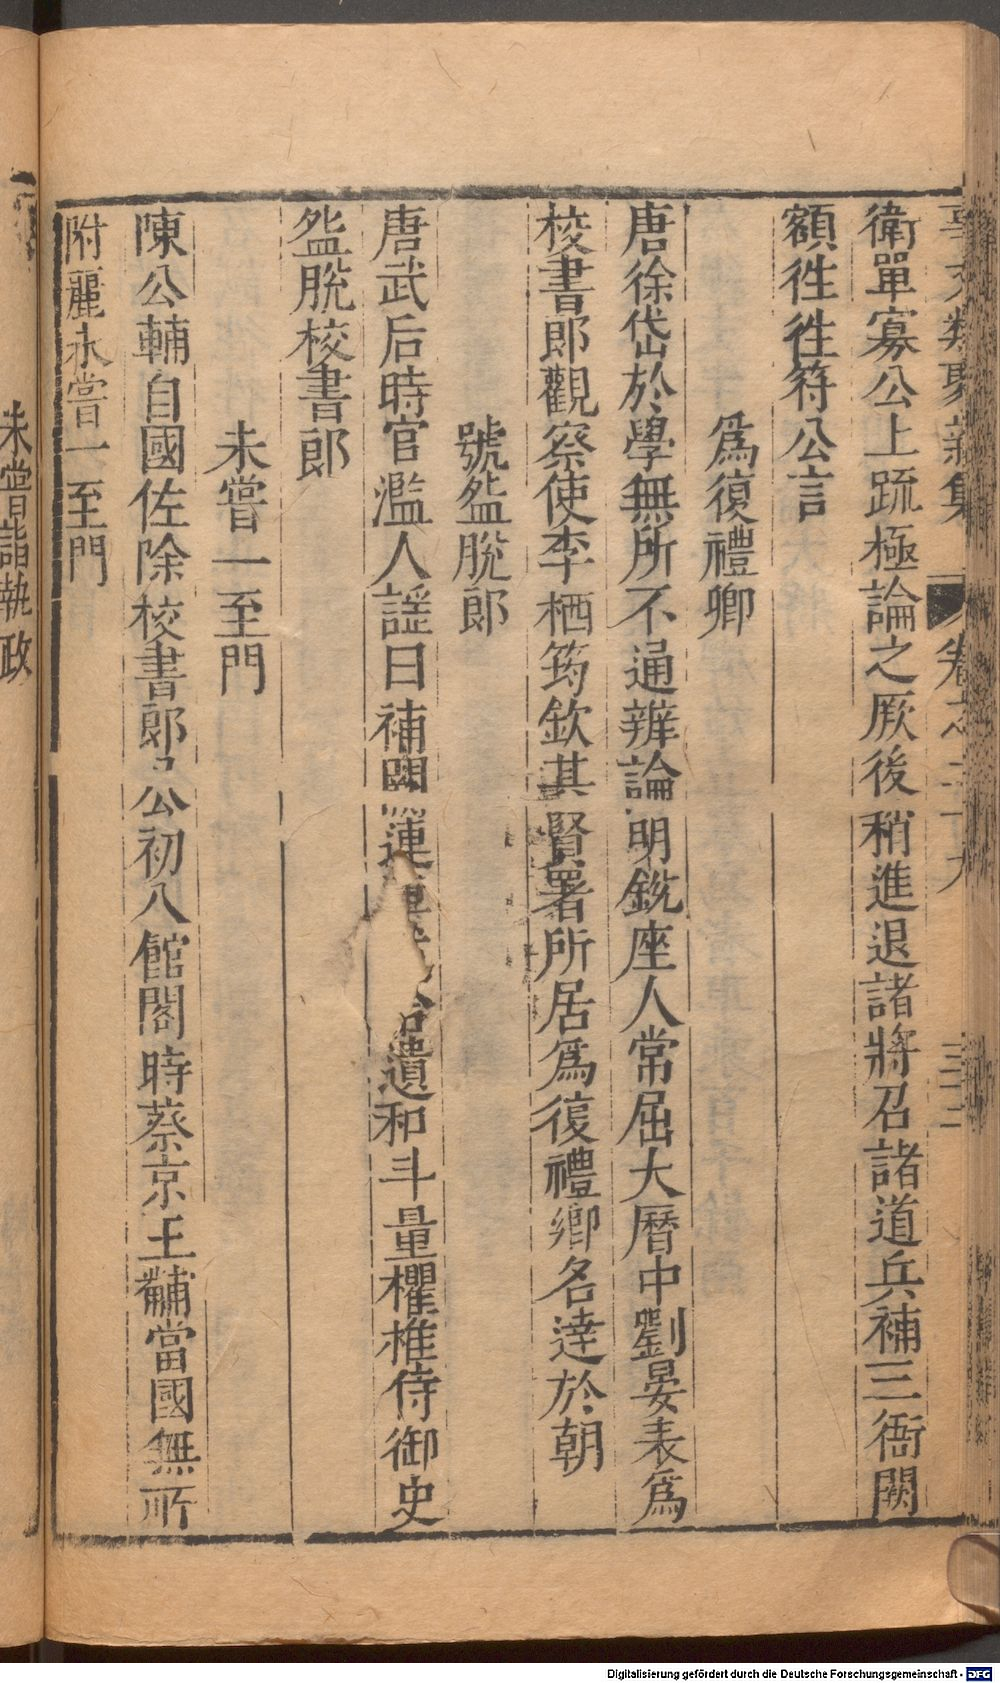 事文類聚新集 卷之二十九 三十二
衛單寡公上疏極論之厥後稍進退諸將召諸道兵補三衙闕
額徃徃符公言
爲復禮鄉
唐徐岱於學無所不通辨論明銳座人常屈大曆中劉晏表爲
校書郎觀察使李栖筠欽其賢署所居爲復禮鄉名達於朝
號盌脫郎
唐武后時官濫人謡曰補闕連車拾遺和斗量欋推侍御史
盌脫校書郎
未嘗一至門
陳公輔自國佐除校書郎公初入館閣時蔡京王黼當國無所
附麗未嘗一至門
未嘗詣執政
Digitalisierung gefördert durch die Deutsche Forschungsgemeinschaft - DFG